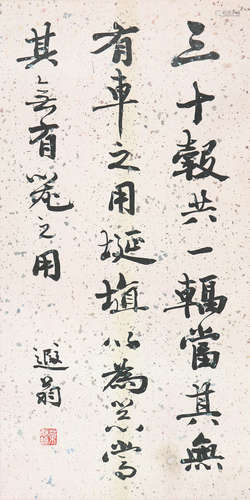 三十轂共一輻當其無
有車之用埏埴以為器當
其無有器之用
遐翁